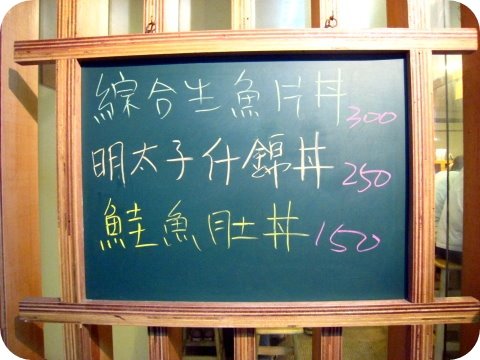 綜合生魚片丼300
明太子什錦丼250
鮭魚肚丼150